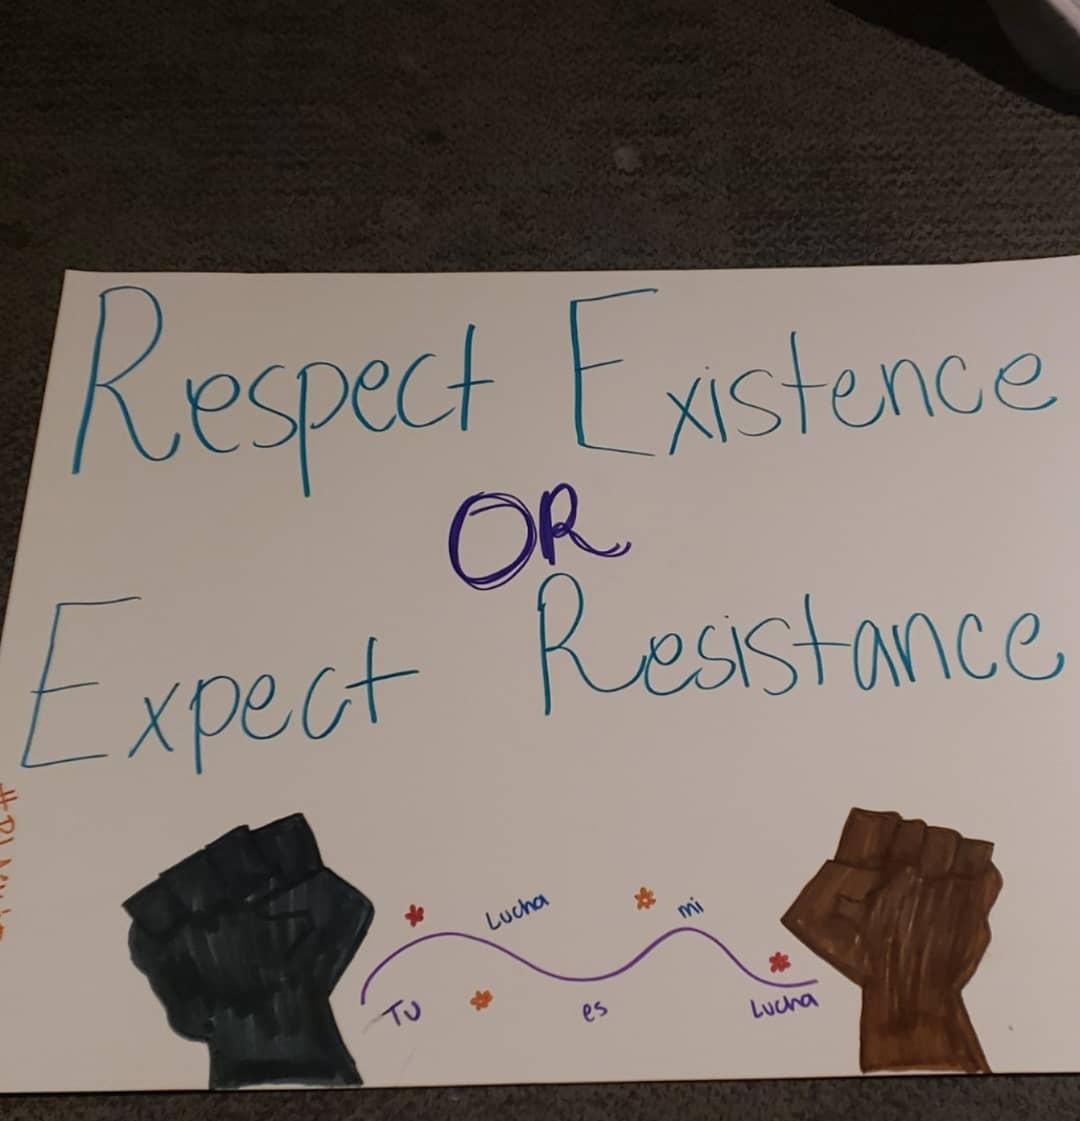 Respect Existence
OR
Expect Resistance
Tu Lucha es mi Lucha